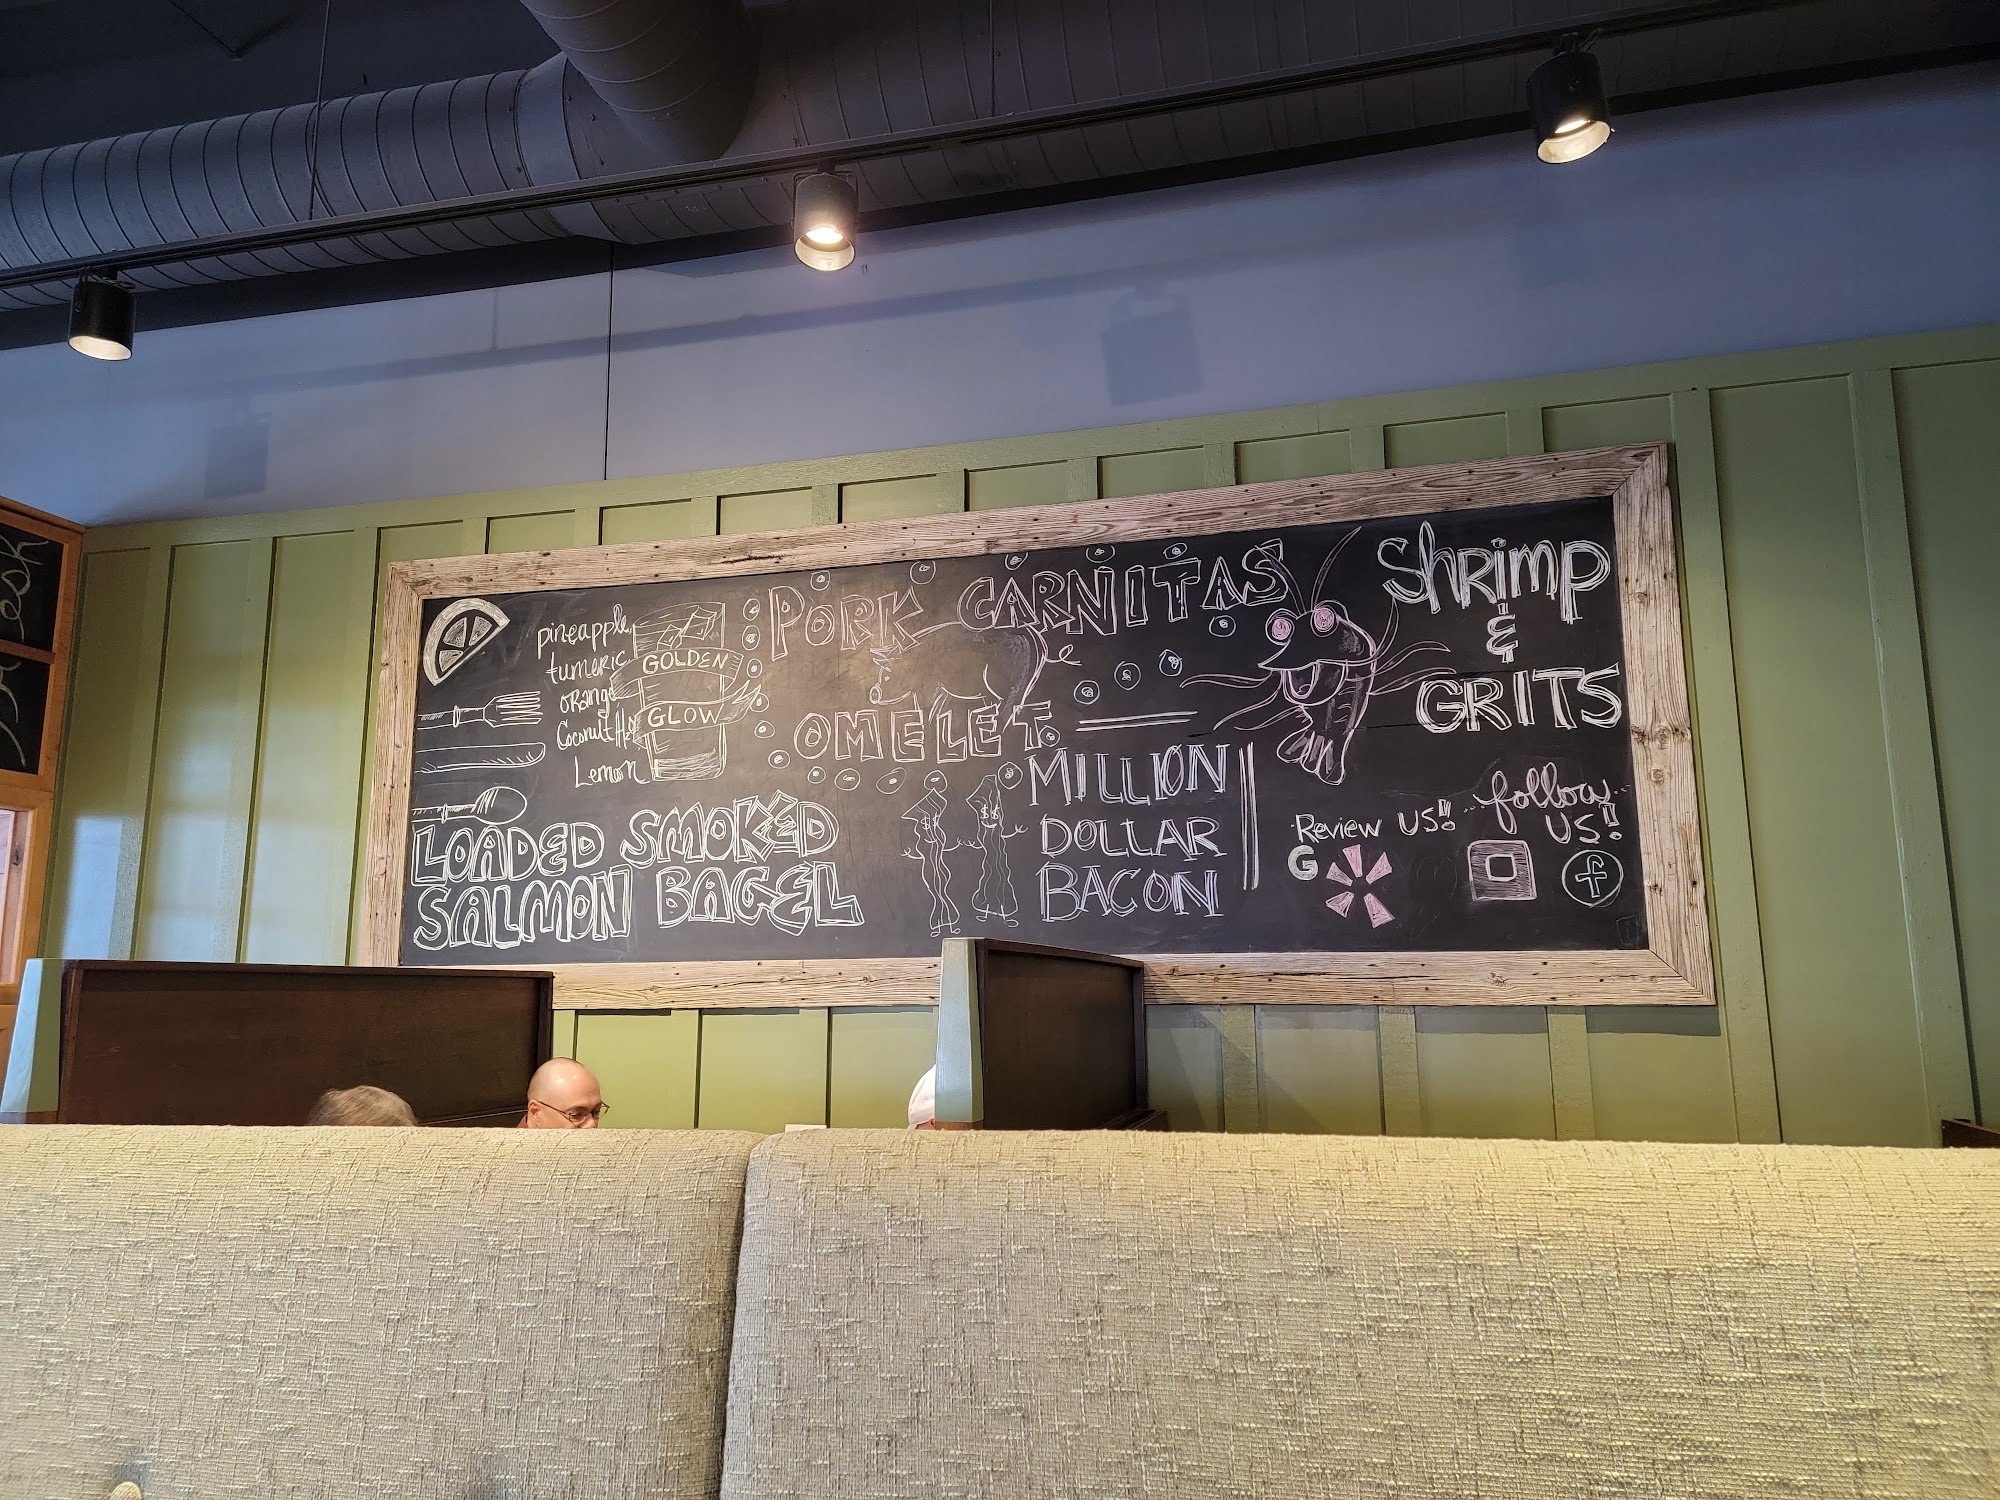 pineapple
tumeric
orange
Coconut H₂O
Lemon
GOLDEN
GLOW
PORK CARNITAS
OMELET
Shrimp
&
GRITS
LOADED SMOKED
SALMON BAGEL
$ $
$ $
MILLION
DOLLAR
BACON
Review US!
G
follow
US!
f